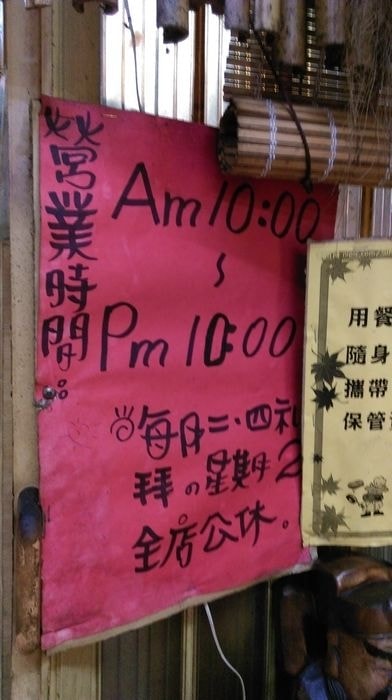 營業時間:
Am 10:00
~
Pm 10:00
每月二.四礼
拜の星期2
全店公休。
用餐
隨身
攜帶
保管